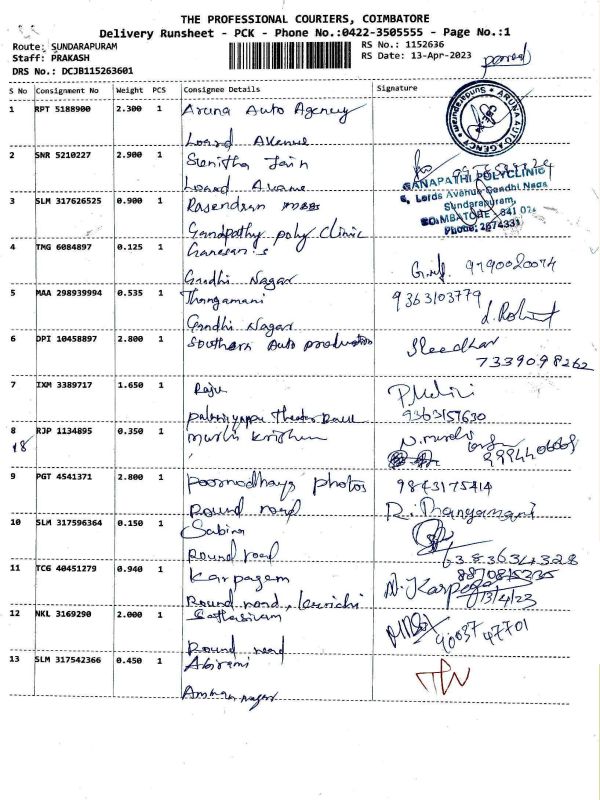 THE PROFESSIONAL COURIERS, COIMBATORE
Delivery Runsheet - PCK - Phone No.:0422-3505555 - Page No.:1
Route: SUNDARAPURAM
RS No.: 1152636
Staff: PRAKASH
RS Date: 13-Apr-2023
DRS No.: DCJB115263601
S No Consignment No Weight PCS Consignee Details Signature
1 RPT 5188900 2.300 1 Aruna Auto Agency
ARUNA AUTO AGENCY Sundarapuram
Loard Avenue
2 SNR 5210227 2.900 1 Sunitha Jain
Loard
GANAPATHI POLYCLINIC
6, Lords Avenue Gandhi Nagar
Sundarapuram,
COIMBATORE - 641 024
Phone: 2674331
3 SLM 317626525 0.900 1 Rasendran
Gandpathy poly clinic
4 TMG 6084897 0.125 1 Ganesan.s
Gandhi Nagar
9790020074
5 MAA 298939994 0.535 1 Thangamani
9363103779
Gandhi Nagar
6 DPI 10458897 2.800 1 Southern Auto production
Sleedhar
7339098262
7 IXM 3389717 1.650 1 Raju
9363157630
8 RJP 1134895 0.350 1
18
9 PGT 4541371 2.800 1 photos
9843175414
Round road
R. Thangamani
10 SLM 317596364 0.150 1 Sabina
Round road
6383634328
11 TCG 40451279 0.940 1 Karpagam
8870815235
N. Karpaga
13/4/23
Round road, kurichi
12 NKL 3169290 2.000 1
Round road
9003747701
13 SLM 317542366 0.450 1 Abirami
nagar